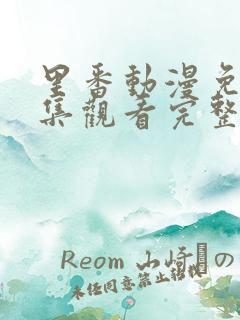 里番動漫免
集觀看完整
Reom 山崎の
未任同意禁止轉載